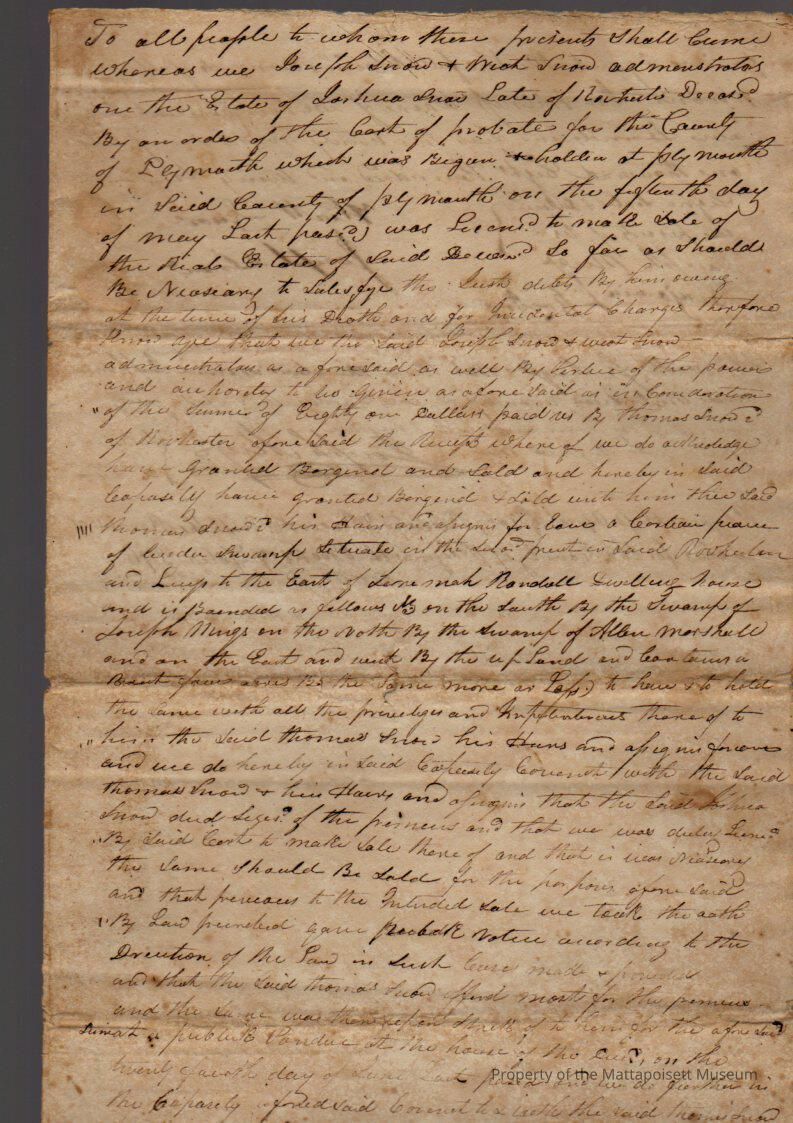 To all people to whom these presents Shall Come
Whereas we Joseph Snow & West Snow admenstrators
one the Estate of Joshua Snow Late of Rochester Deceasd
By an order of the Cort of probate for the County
of Plymouth which was Begun & holden at plymouth
in Said County of plymouth on the fifteenth day
of may Last pased) was Licencd to make Sale of
the Real Estate of Said Deceasd So far as Should
Be Nessesary to Satesfye the Just debts By him owing
at the time of his Death and for Incidental Charges therfore
know yee that we the Said Joseph Snow & west Snow
administrators as afore said as well By Vertue of the power
and authority to us Given as afore Said as in Consideration
of the Summe of Eighty one Dollars paid us By thomas Snow
of Rochester afore Said the Receipt where of we do acknoledge
have Granted Bargend and Sold and hereby in Said
Capasity have granted Bargend & Sold unto him the Said
thomas Snow his Hairs and asigns for Ever a Certain peace
of Ceder Swamp Setuate in the prect in Said Rochester
and Lieys to the East of Randall Dwelling House
and is Baunded as follows on the South By the Swamp of
Joseph Wings on the North By the Swamp of Allen Marshall
and on the East and west By the up Land and Contains
Bout four acres Be the Same more or Less) to have & to hold
the Same with all the preveliges and there of to
him the Said thomas Snow his Hairs and asigns forever
and we do hereby in Said Capasity Covenent with the Said
thomas Snow & his Hairs and asigns that the Said Joshua
Snow died of the premeses and that we was duley Licencd
By Said Cort to make Sale there of and that it was Nesesary
the Same Should Be Sold for the porpous afore Said
and that previous to the Intended Sale we took the oath
By Law gave publick Notice according to the
Direction of the Law in Such Cases made & provided
and that the Said thomas Snow offerd most for the premeses
and the Same was then struck of to him for the afore Said
Sum at a publick Vandue at the house of the on the
twenty fourth day of June Last pased and we do further in
the Capasity afore said Covenent to & with the said thomas Snow
Property of the Mattapoisett Museum